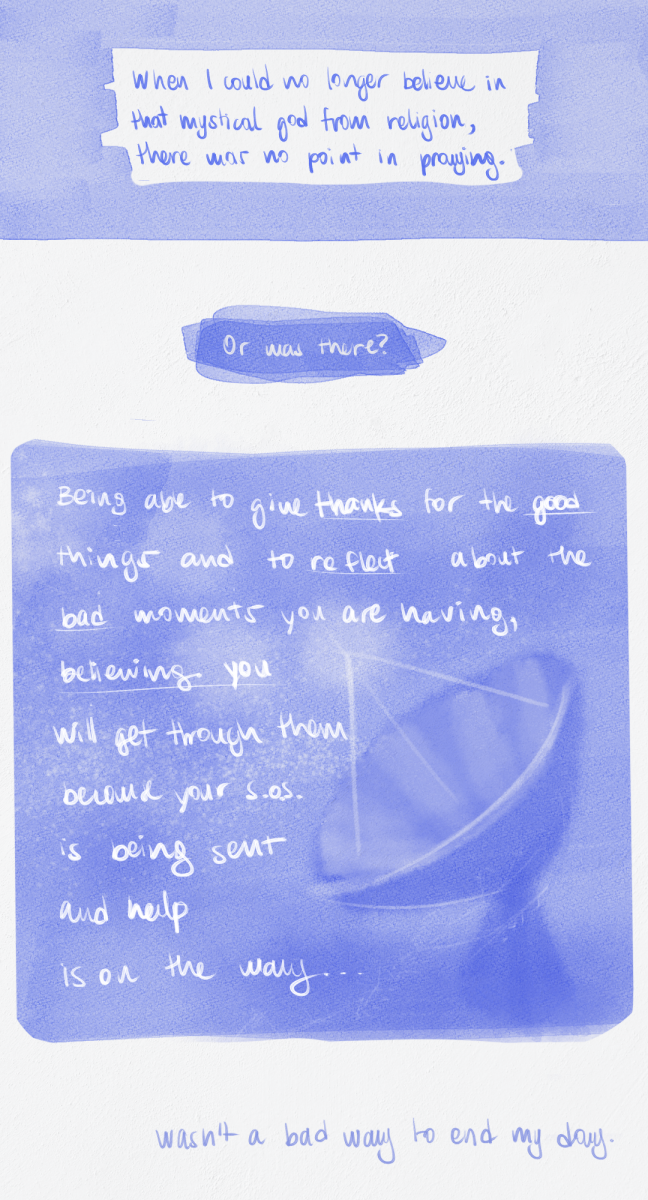 When I could no longer believe in
that mystical god from religion,
there was no point in praying.
Or was there?
Being able to give thanks for the good
things and to reflect about the
bad moments you are having,
believing you
will get through them
because your s.o.s.
is being sent
and help
is on the way...
wasn't a bad way to end my day.